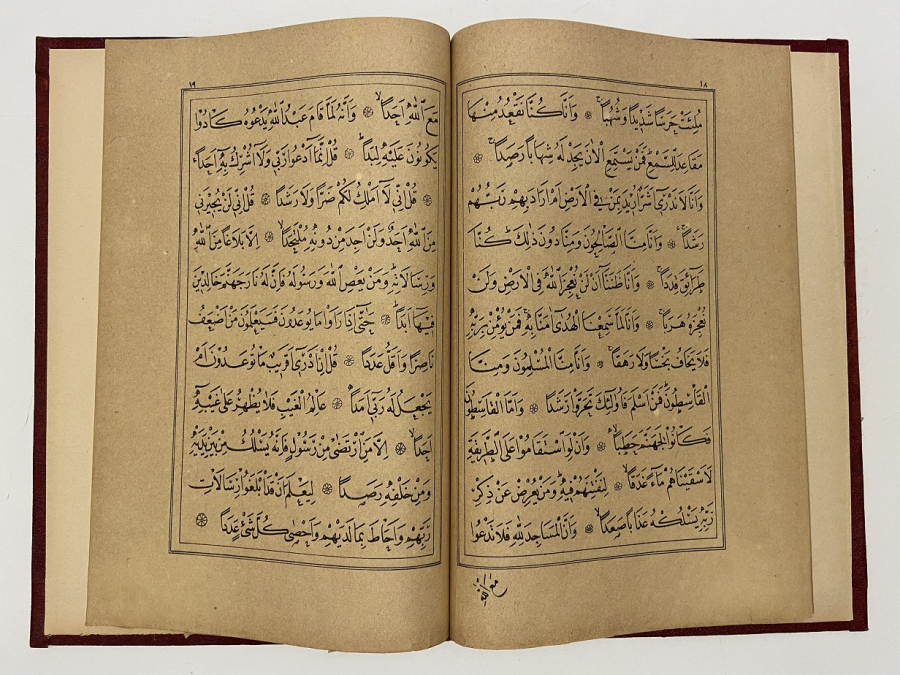 ١٨
مُلِئَتْ حَرَسًا شَدِيدًا وَشُهُبًا ۞ وَاَنَّا كُنَّا نَقْعُدُ مِنْهَا
مَقَاعِدَ لِلسَّمْعِ فَمَنْ يَسْتَمِعِ الْاٰنَ يَجِدْ لَهُ شِهَابًا رَصَدًا ۞
وَاَنَّا لَا نَدْرٖى اَشَرٌّ اُرٖيدَ بِمَنْ فِى الْاَرْضِ اَمْ اَرَادَ بِهِمْ رَبُّهُمْ
رَشَدًا ۞ وَاَنَّا مِنَّا الصَّالِحُونَ وَمِنَّا دُونَ ذٰلِكَ كُنَّا
طَرَائِقَ قِدَدًا ۞ وَاَنَّا ظَنَنَّا اَنْ لَنْ نُعْجِزَ اللّٰهَ فِى الْاَرْضِ وَلَنْ
نُعْجِزَهُ هَرَبًا ۞ وَاَنَّا لَمَّا سَمِعْنَا الْهُدٰى اٰمَنَّا بِهٖ فَمَنْ يُؤْمِنْ بِرَبِّهٖ
فَلَا يَخَافُ بَخْسًا وَلَا رَهَقًا ۞ وَاَنَّا مِنَّا الْمُسْلِمُونَ وَمِنَّا
الْقَاسِطُونَ فَمَنْ اَسْلَمَ فَاُولٰئِكَ تَحَرَّوْا رَشَدًا ۞ وَاَمَّا الْقَاسِطُونَ
فَكَانُوا لِجَهَنَّمَ حَطَبًا ۞ وَاَنْ لَوِ اسْتَقَامُوا عَلَى الطَّرٖيقَةِ
لَاَسْقَيْنَاهُمْ مَاءً غَدَقًا ۞ لِنَفْتِنَهُمْ فٖيهِ وَمَنْ يُعْرِضْ عَنْ ذِكْرِ
رَبِّهٖ يَسْلُكْهُ عَذَابًا صَعَدًا ۞ وَاَنَّ الْمَسَاجِدَ لِلّٰهِ فَلَا تَدْعُوا
مَعَ اللّٰهِ
١٩
مَعَ اللّٰهِ اَحَدًا ۞ وَاَنَّهُ لَمَّا قَامَ عَبْدُ اللّٰهِ يَدْعُوهُ كَادُوا
يَكُونُونَ عَلَيْهِ لِبَدًا ۞ قُلْ اِنَّمَا اَدْعُوا رَبّٖى وَلَا اُشْرِكُ بِهٖ اَحَدًا
۞ قُلْ اِنّٖى لَا اَمْلِكُ لَكُمْ ضَرًّا وَلَا رَشَدًا ۞ قُلْ اِنّٖى لَنْ يُجٖيرَنٖى
مِنَ اللّٰهِ اَحَدٌ وَلَنْ اَجِدَ مِنْ دُونِهٖ مُلْتَحَدًا ۞ اِلَّا بَلَاغًا مِنَ اللّٰهِ
وَرِسَالَاتِهٖ وَمَنْ يَعْصِ اللّٰهَ وَرَسُولَهُ فَاِنَّ لَهُ نَارَ جَهَنَّمَ خَالِدٖينَ
فٖيهَا اَبَدًا ۞ حَتّٰى اِذَا رَاَوْا مَا يُوعَدُونَ فَسَيَعْلَمُونَ مَنْ اَضْعَفُ
نَاصِرًا وَاَقَلُّ عَدَدًا ۞ قُلْ اِنْ اَدْرٖى اَقَرٖيبٌ مَا تُوعَدُونَ اَمْ
يَجْعَلُ لَهُ رَبّٖى اَمَدًا ۞ عَالِمُ الْغَيْبِ فَلَا يُظْهِرُ عَلٰى غَيْبِهٖ
اَحَدًا ۞ اِلَّا مَنِ ارْتَضٰى مِنْ رَسُولٍ فَاِنَّهُ يَسْلُكُ مِنْ بَيْنِ يَدَيْهِ
وَمِنْ خَلْفِهٖ رَصَدًا ۞ لِيَعْلَمَ اَنْ قَدْ اَبْلَغُوا رِسَالَاتِ
رَبِّهِمْ وَاَحَاطَ بِمَا لَدَيْهِمْ وَاَحْصٰى كُلَّ شَىْءٍ عَدَدًا ۞